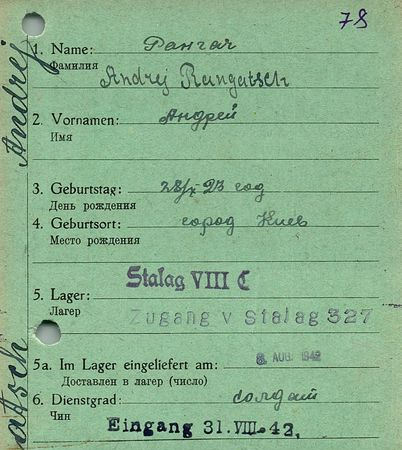 78
1. Name: Рангач
Фамилия
Andrej Rangatsch
2. Vornamen: Андрей
Имя
3. Geburtstag: 28/X 23 год
День рождения
4. Geburtsort: город Киев
Место рождения
Stalag VIII C
5. Lager:
Лагер
Zugang v Stalag 327
5a. Im Lager eingeliefert am: 8. AUG. 1942
Доставлен в лагер (число)
6. Dienstgrad: солдат
Чин
Eingang 31.VIII.42.
Andrej
atsch